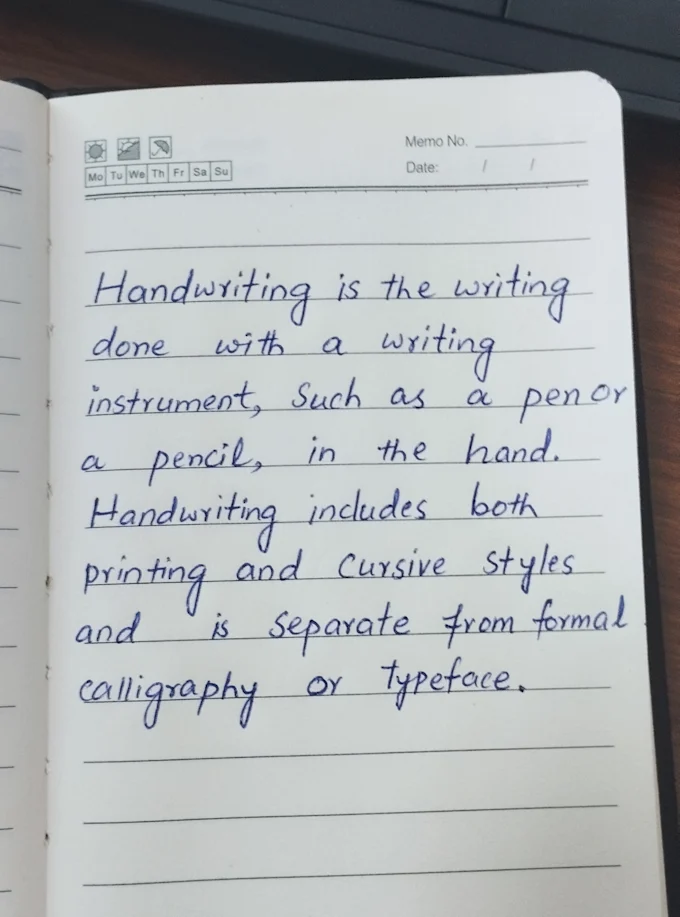 Memo No.
Mo Tu We Th Fr Sa Su Date: / /
Handwriting is the writing
done with a writing
instrument, Such as a pen or
a pencil, in the hand.
Handwriting includes both
printing and cursive styles
and is separate from formal
calligraphy or typeface.